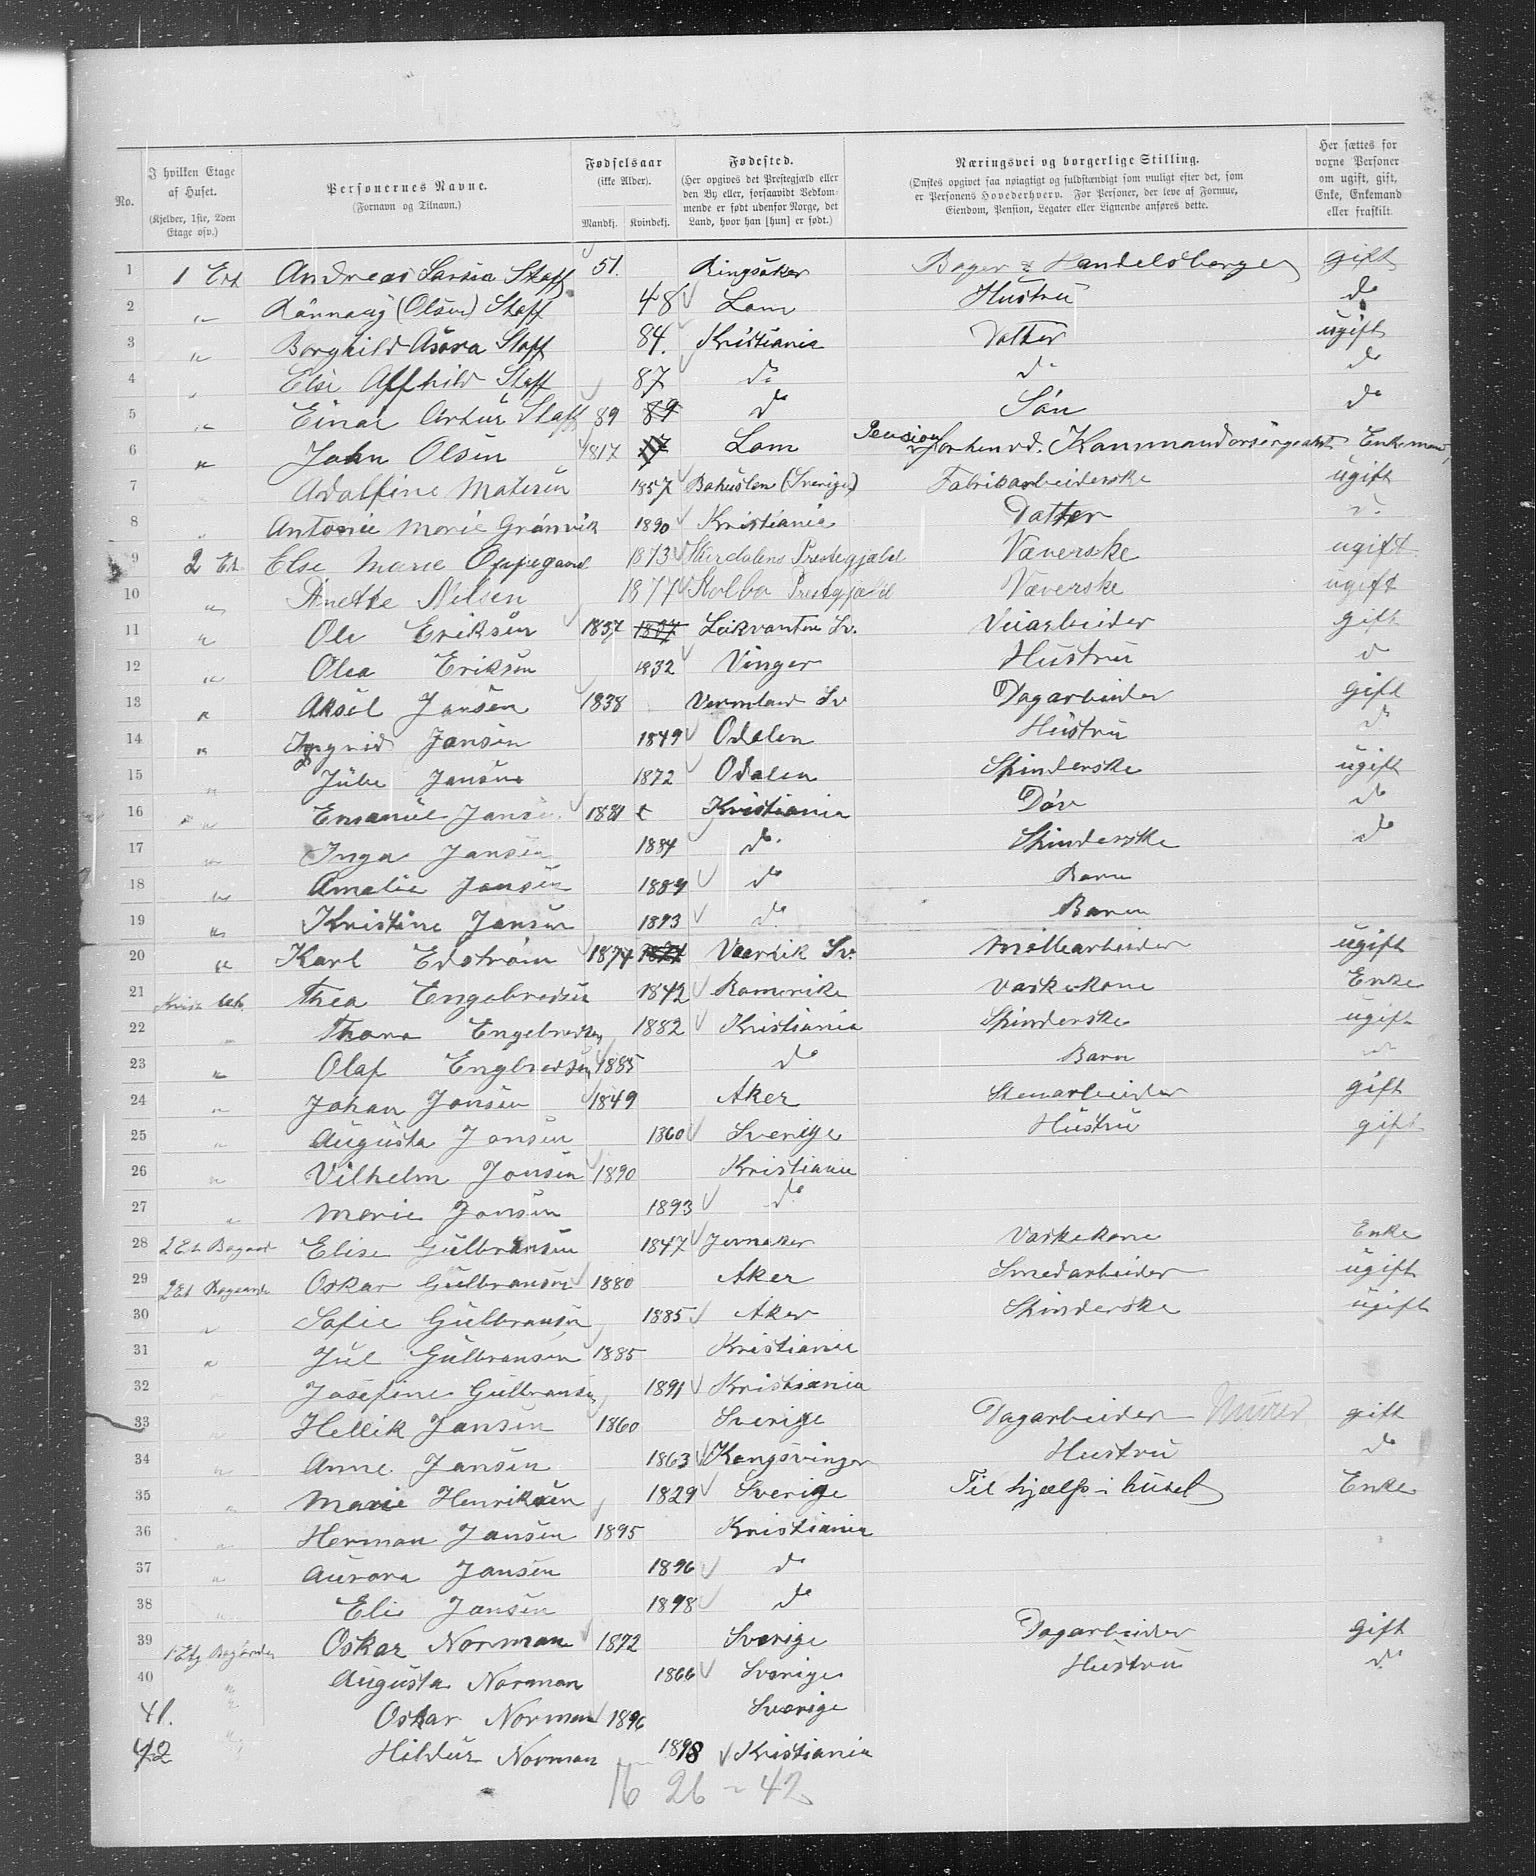 No. | I hvilken Etage af Huset. (Kjelder, 1ste, 2den Etage osv.) | Personernes Navne. (Fornavn og Tilnavn.) | Fødselsaar (ikke Alder). Mandkj. Kvindekj. | Fødested. (Her opgives det Prestegjæld eller den By eller, forsaavidt Vedkommende er født udenfor Norge, det Land, hvor han [hun] er født.) | Næringsvei og borgerlige Stilling. (Ønskes opgivet saa nøiagtigt og fuldstændigt som muligt efter det, som er Personens Hovederhverv. For Personer, der leve af Formue, Eiendom, Pension, Legater eller Lignende anføres dette. | Her sættes for voxne Personer om ugift, gift, Enke, Enkemand eller fraskilt.
1 1 Et Andreas Larsen Staff 51. Ringsaker Bager & Handelsborger gift
2 " Rønnaug (Olsen) Staff 48 Lom Hustru do
3 " Borghild Asora Staff 84. Kristiania Datter ugift
4 " Else Alfhild Staff 87 do do do
5 " Einar Artur Staff 89 89 do Søn do
6 " John Olsen 1817 17 Lom Pension forhenvd. Kommandersergeant Enkemand
7 " Adolfine Matesen 1857 Bahuslen (Sverige) Fabrikarbeiderske ugift
8 " Antonie Marie Grønvik 1890 Kristiania Datter do
9 2 Et. Else Marie Oppegaard 1873 Prestegjæld Væverske ugift
10 " Anette Nelsen 1877 Kolbo Prestgjæld Væverske ugift
11 " Ole Eriksen 1837 1837 Leikvanten Sv. Veiarbeider gift
12 " Olea Eriksen 1832 Vinger Hustru do
13 " Aksel Jansen 1838 Vermland Sv Dagarbeider gift
14 " Ingrid Jansen 1849 Odalen Hustru do
15 " Julie Jansen 1872 Odalen Spinderske ugift
16 " Emanuel Jansen 1881 Kristiania Døv do
17 " Inga Jansen 1884 do. Spinderske do
18 " Amalie Jansen 1889 do Barn
19 " Kristine Jansen 1893 do. Barn
20 " Karl Edstrøm 1874 1874 Sv. Møllearbeider ugift
21 Kvist Thea Engebredsen 1842 Romerike Vaskekone Enke
22 " Thora Engebredsen 1882 Kristiania Spinderske ugift
23 " Olaf Engbredsen 1885 do Barn do
24 " Johan Jonsen 1849 Aker Stenarbeider gift
25 " Augusta Jonsen 1860 Sverige Hustru gift
26 " Vilhelm Jonsen 1890 Kristiania
27 " Marie Jonsen 1893 do
28 2 Et Bagaard Elise Gulbransen 1847 Jevnaker Vaskekone Enke
29 2 Et Bagaarde Oskar Gulbransen 1880 Aker Smedarbeider ugift
30 " Sofie Gulbransen 1885 Aker Spinderske ugift
31 " Jul Gulbransen 1885 Kristiania
32 " Josefine Gulbransen 1891 Kristiania
33 " Hellik Jansen 1860 Sverige Dagarbeider Murer gift
34 " Anne Jansen 1863 Kongsvinger Hustru do
35 " Marie Henriksen 1829 Sverige Til hjælp i huset Enke
36 " Herman Jansen 1895 Kristiania
37 " Aurora Jansen 1896 do
38 " Eli Jansen 1898 do
39 1 Etg Bagården Oskar Norman 1872 Sverige Dagarbeider gift
40 " Augusta Norman 1866 Sverige Hustru do
41. " Oskar Norman 1896 Sverige
42 " Hildur Norman 1898 Kristiania
16 26 = 42